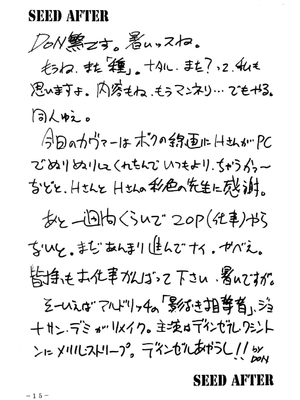 SEED AFTER
DON繁です。暑いッスね。
もうね、また「種」。ナタル、また？って、私も
思いますよ。内容もね、もうマンネリ…でもやる。
同人ゆえ。
今回のカヴァーはボクの線画にHさんがPC
でぬりぬりしてくれたんでいつもより、ちゃうがっ〜
などと、HさんとHさんの彩色の先生に感謝。
あと一週間ぐらいで20P(仕事)やら
ないと。まだあんまり進んでナイ。やべえ。
皆様もお仕事がんばって下さい、暑いですが。
そーいえばアルドリッチの「影なき狙撃者」、ジョ
ナサン・デミがリメイク。主演はデインゼルワシント
ンにメリルストリープ。デインゼルあやうし!! by DON
SEED AFTER
-15-